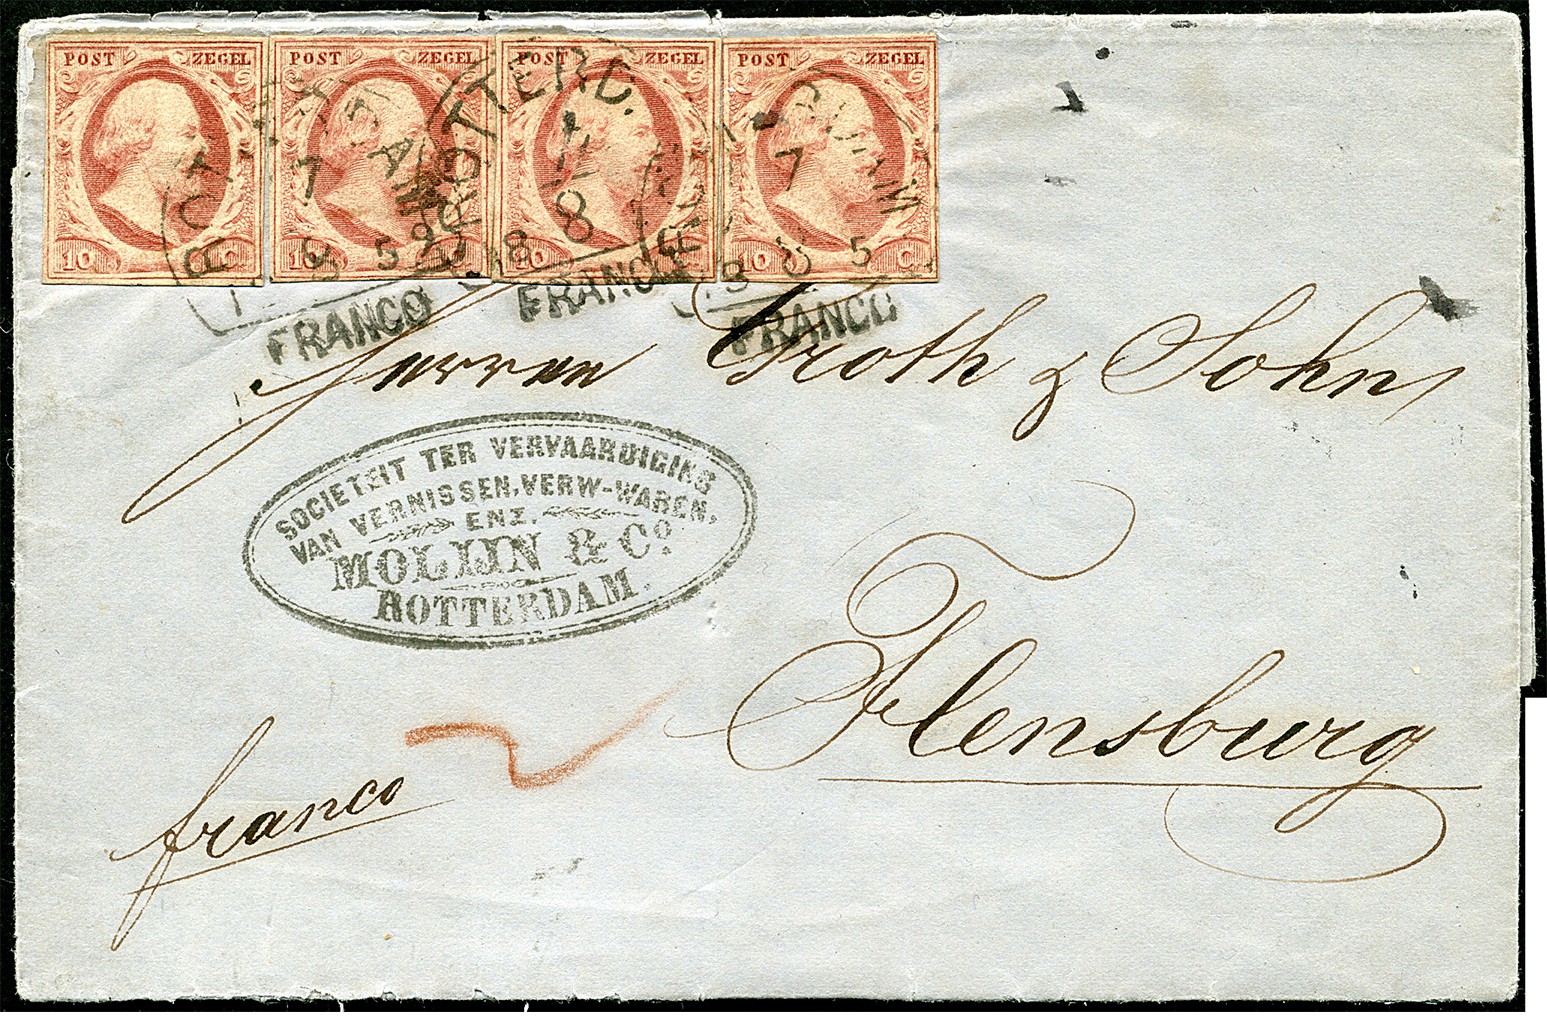 POST ZEGEL POST ZEGEL POST ZEGEL POST ZEGEL
10 C. 10 C. 10 C. 10 C.
ROTTERD.
8
FRANCO FRANCO FRANCO
Herren Groth & Sohn
SOCIETEIT TER VERVAARDIGING
VAN VERNISSEN, VERW-WAREN,
ENZ.
MOLIJN & Co.
ROTTERDAM.
Flensburg
franco